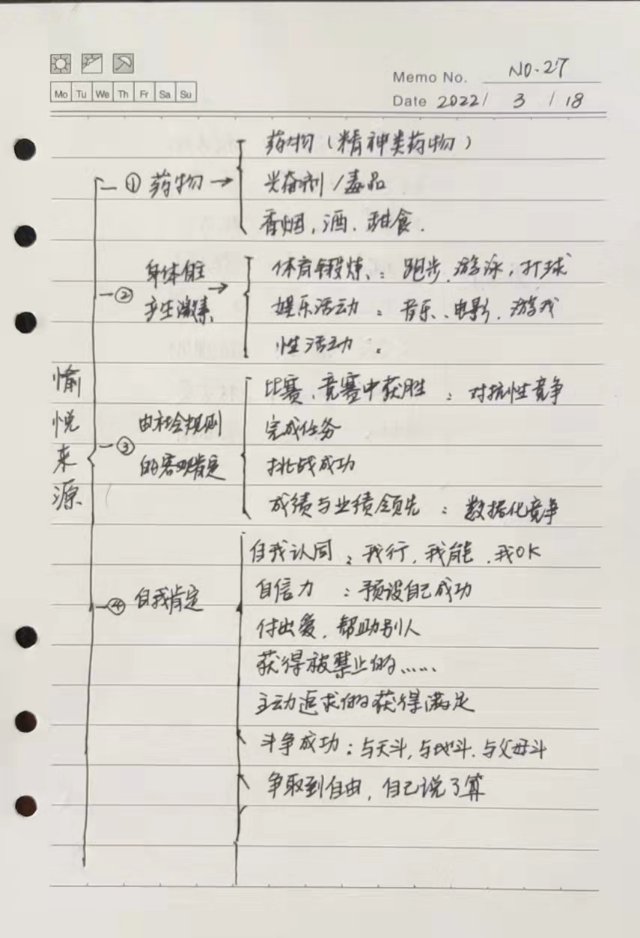 Memo No. NO.27
Mo Tu We Th Fr Sa Su
Date 2022 / 3 / 18
药物（精神类药物）
① 药物 → 兴奋剂／毒品
香烟，酒、甜食．
② 身体自
产生激素 →
体育锻炼：跑步、游泳，打球
娱乐活动：音乐、电影、游戏
性活动．
愉悦来源
③ 由社会规则
的客观肯定
比赛、竞赛中获胜：对抗性竞争
完成任务
挑战成功
成绩与业绩领先：数据化竞争
④ 自我肯定
自我认同：我行，我能，我OK
自信力：预设自己成功
付出爱，帮助别人
获得被禁止的……
主动追求的获得满足
斗争成功：与天斗，与地斗、与父母斗
争取到自由，自己说了算